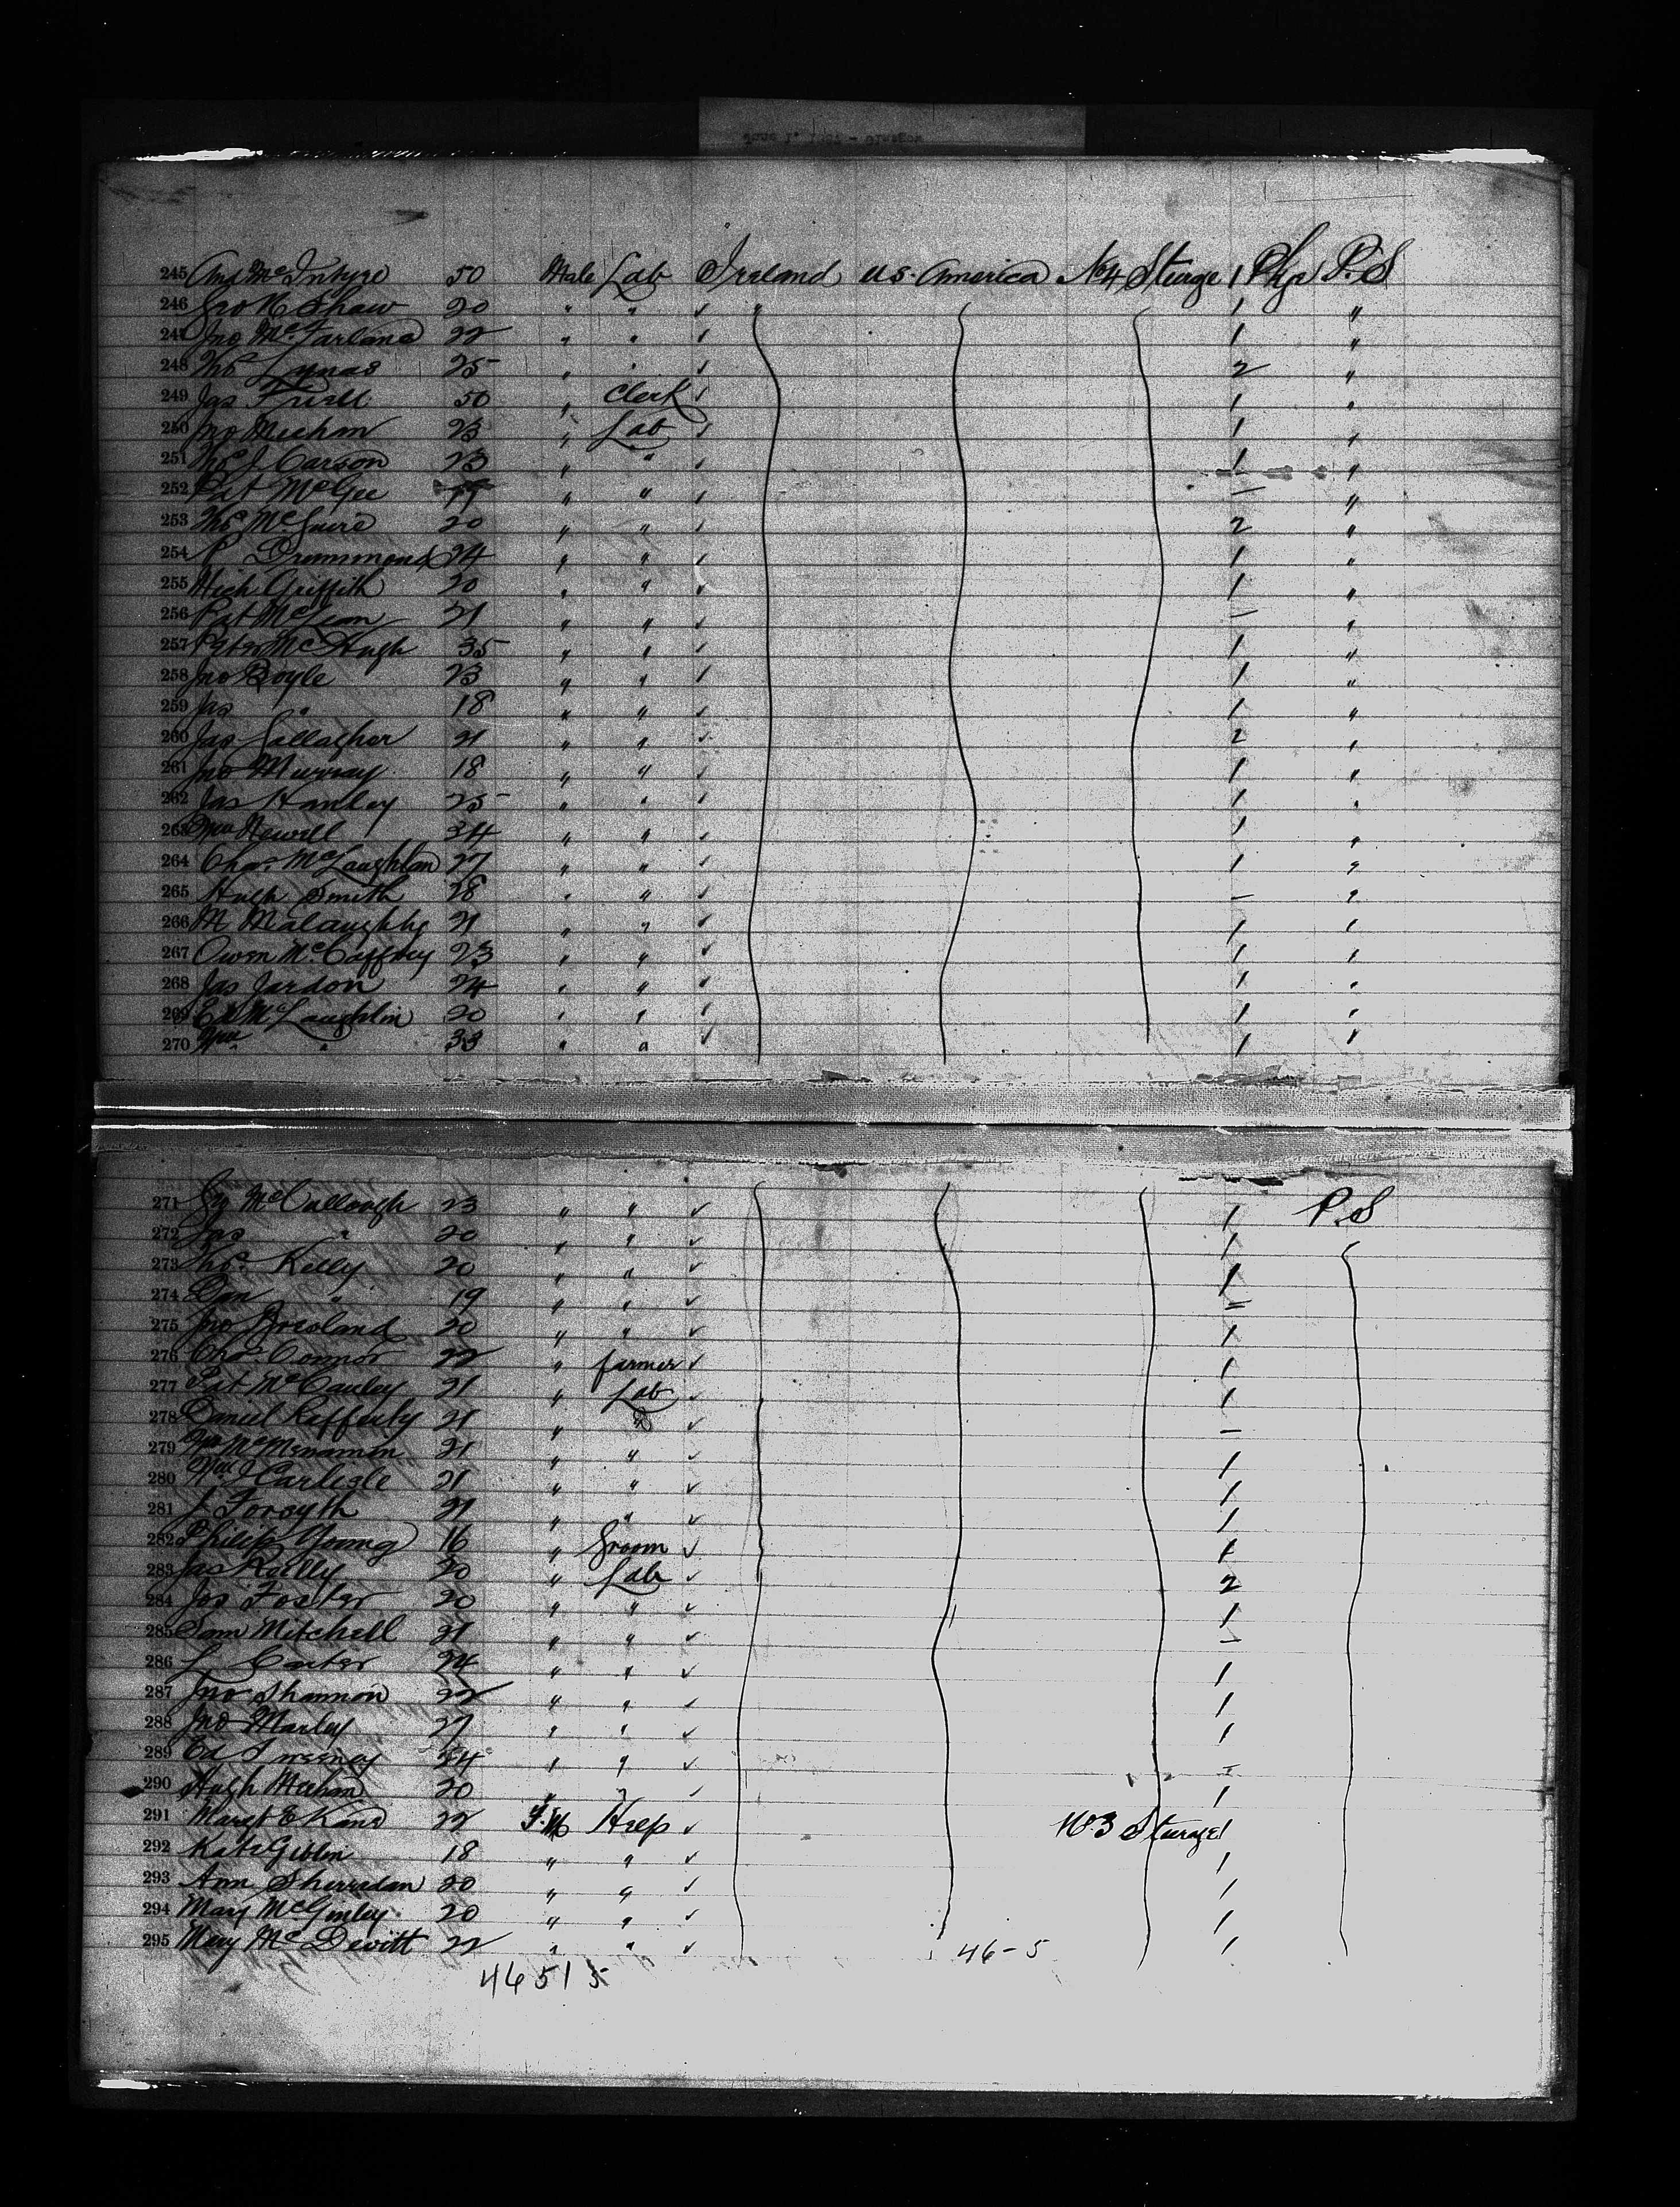 245 And McIntyre 50 Male Lab Ireland U.S. America No 4 Steerage 1 Phy P.S
246 Jno K Shaw 20 " " ✓ " 1 "
247 Jno McFarland 22 " " ✓ 1 "
248 Ths Lynas 25 " " ✓ 2 "
249 Jas Friell 50 " Clerk ✓ 1 "
250 Jno Meehan 23 " Lab ✓ 1 "
251 Ths J Carson 23 " " ✓ 1 "
252 Pat McGee " " ✓ — "
253 Ths McGuire 20 " " ✓ 2 "
254 Drummond 24 " " ✓ 1 "
255 Mich Griffith 20 " " ✓ 1 "
256 Pat 21 " " ✓ — "
257 Peter McHugh 35 " " ✓ 1 "
258 Jno Boyle 23 " " ✓ 1 "
259 Jas " 18 " " ✓ 1 "
260 Jas Gallagher 21 " " ✓ 2 "
261 Jno Murray 18 " " ✓ 1 "
262 Jas Hanley 25 " " ✓ 1 "
263 Wm Newell 34 " " ✓ 1 "
264 Chas. McLaughlan 27 " " ✓ 1 "
265 Hugh Smith 28 " " ✓ — "
266 M 21 " " ✓ 1 "
267 Owen McCaffrey 23 " " ✓ 1 "
268 Jas Jardon 24 " " ✓ 1 "
269 Ed McLaughlin 20 " " ✓ 1 "
270 Wm " 33 " " ✓ 1 "
271 McCullough 23 " " ✓ 1 P.S
272 Jas " 20 " " ✓ 1
273 Ths. Kelly 20 " " ✓ 1
274 Dan " 19 " " ✓ —
275 Jno Breoland 20 " " ✓ 1
276 Chas. Connor 22 " farmer ✓ 1
277 Pat McCauley 21 " Lab ✓ 1
278 Daniel Rafferty 21 " " ✓ —
279 McMenamin 21 " " ✓ 1
280 Wm Carlisle 21 " " ✓ 1
281 J Forsyth 21 " " ✓ 1
282 Philip Young 16 " Groom ✓ 1
283 Jas Reilly 20 " Lab ✓ 2
284 Jos Foster 20 " " ✓ 1
285 Sam Mitchell 21 " " ✓ —
286 Carter 24 " " ✓ 1
287 Jno Shannon 22 " " ✓ 1
288 Jno Marley 27 " " ✓ 1
289 Ed Sweeney 24 " " ✓ —
290 Hugh Meehan 20 " " ✓ 1
291 Margt E Kane 22 ✓ No. 3 Steerage 1
292 Kate Giblin 18 " " ✓ 1
293 Ann Sherredan 20 " " ✓ 1
294 Mary McGinley 20 " " ✓ 1
295 Mary McDevitt 22 " " ✓ 1
46-5
46515